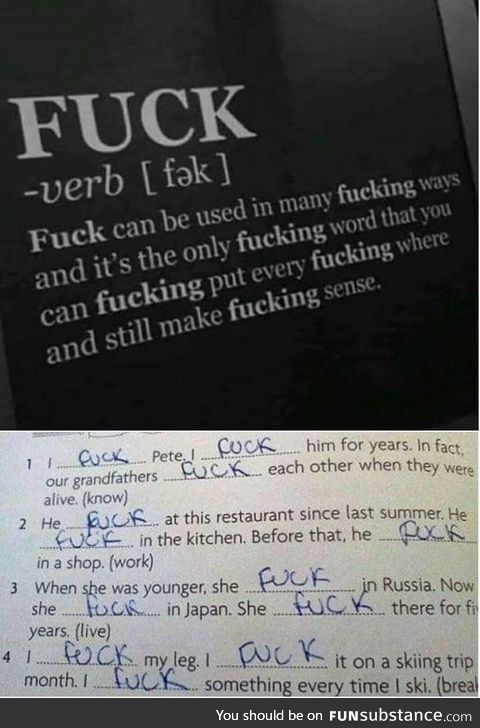 FUCK
-verb [fək]
Fuck can be used in many fucking ways
and it's the only fucking word that you
can fucking put every fucking where
and still make fucking sense.
1 I FUCK Pete. I FUCK him for years. In fact,
our grandfathers FUCK each other when they were
alive. (know)
2 He FUCK at this restaurant since last summer. He
FUCK in the kitchen. Before that, he FUCK
in a shop. (work)
3 When she was younger, she FUCK in Russia. Now
she FUCK in Japan. She FUCK there for
years. (live)
4 I FUCK my leg. I FUCK it on a skiing trip
month. I FUCK something every time I ski. (break
You should be on FUNsubstance.com